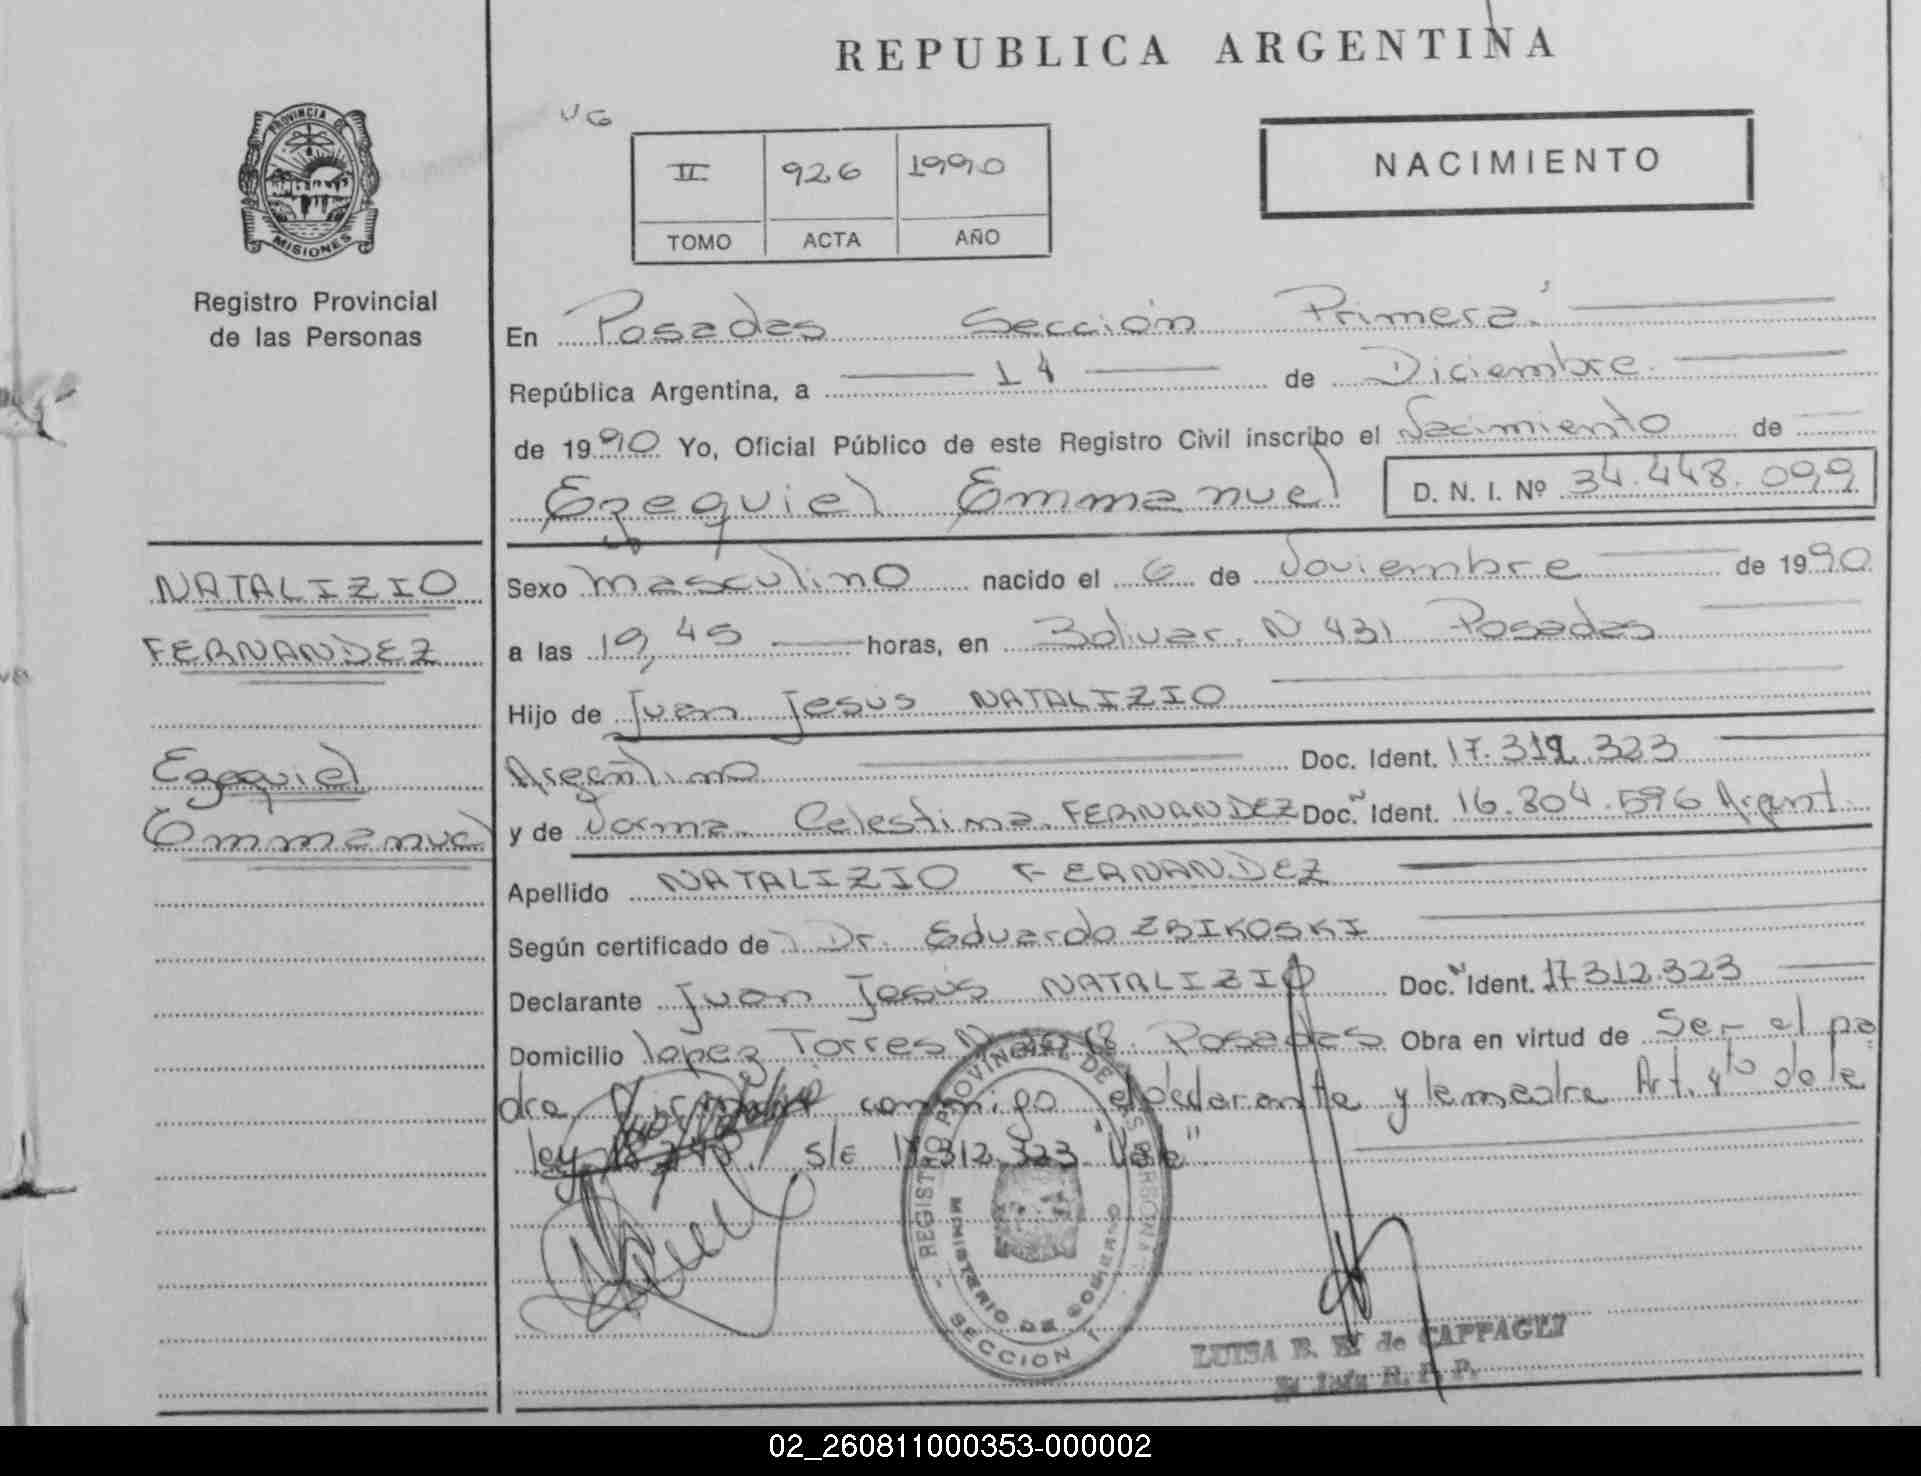 REPUBLICA ARGENTINA
PROVINCIA DE
MISIONES
Registro Provincial
de las Personas
UG
II 926 1990
TOMO ACTA AÑO
NACIMIENTO
En Posadas Sección Primera
República Argentina, a 14 de Diciembre
de 1990 Yo, Oficial Público de este Registro Civil inscribo el Nacimiento de
Ezequiel Emmanuel D. N. I. Nº 34.448.099
NATALIZIO
FERNANDEZ
Ezequiel
Emmanuel
Sexo masculino nacido el 6 de Noviembre de 1990
a las 19,45 horas, en Bolivar N 431 Posadas
Hijo de Juan Jesus NATALIZIO
Argentino Doc. Ident. 17.312.323
y de Norma Celestina FERNANDEZ Doc. Ident. 16.804.596 Argent.
Apellido NATALIZIO FERNANDEZ
Según certificado de Dr. Eduardo ZBIKOSKI
Declarante Juan Jesús NATALIZIO Doc. Ident. 17312.323
Domicilio lopez Torres N Posadas Obra en virtud de Ser el pa
dre conmigo el declarante y la madre Art. 4to de la
ley s/e 17.312.323 "Vale"
REGISTRO PROVINCIAL DE LAS PERSONAS
MINISTERIO DE GOBIERNO
SECCION 1
LUISA B. de CAFFAGLI
R. P. P.
02_260811000353-000002